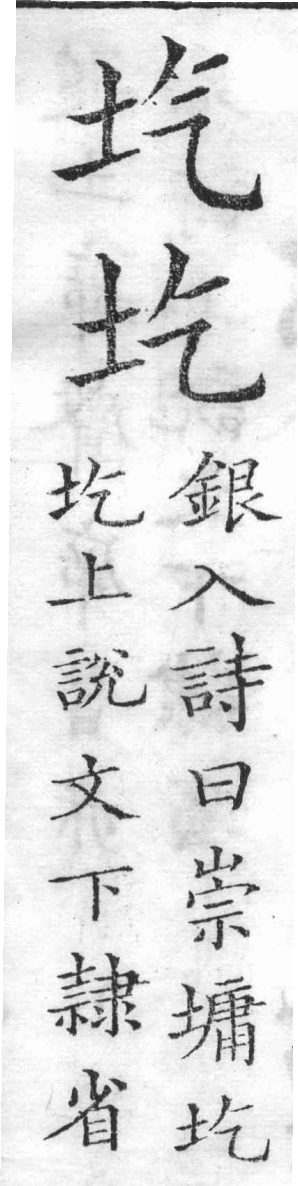 圪圪
銀入詩曰崇墉圪
圪上說文下隸省